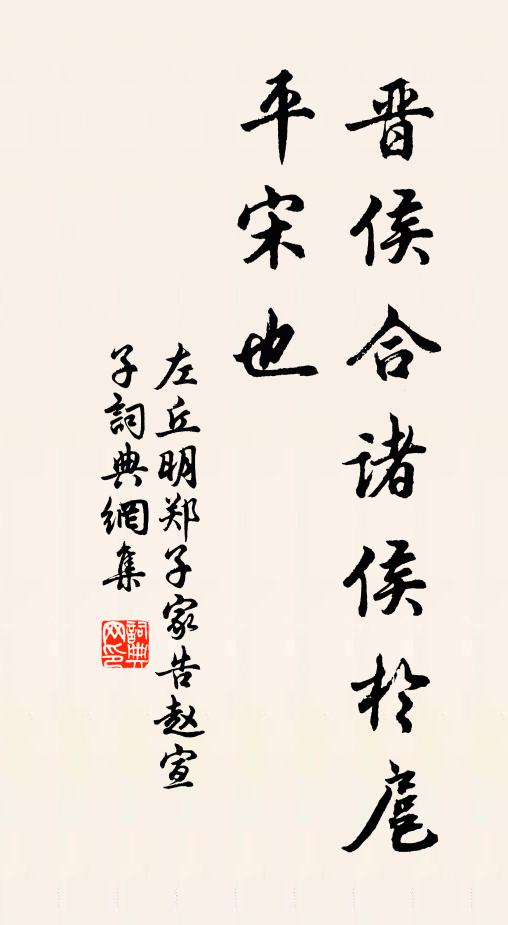 晋侯合诸侯於扈
平宋也
左丘明郑子家告赵宣
子詞典網集
詞典
网印